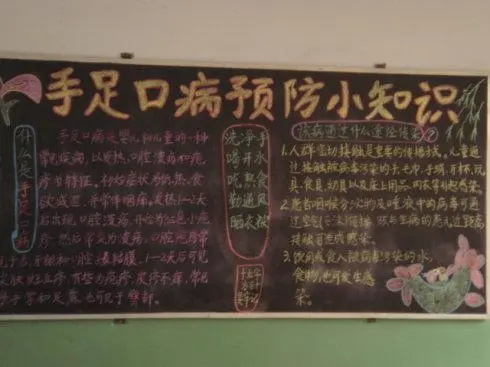 手足口病预防小知识
什么是手足口病
手足口病是婴儿和儿童的一种
常见疾病,以发热、口腔溃疡和疱
疹为特征。初始症状为低热、食
欲减退、并常伴咽痛。发热1-2天
后出现口腔溃疡,开始为红色小疱
疹,然后常变为溃疡。口腔疱疹常
见于舌、牙龈和口腔颊黏膜。1-2天后可见
皮肤斑丘疹,有些为疱疹,皮疹不痒,常见
于手掌和足底,也可见于臀部。
洗净手
喝开水
吃熟食
勤通风
晒衣被
该病通过什么途径传染?
1、人群密切接触是重要的传播方式。儿童通
过接触被病毒污染的手、毛巾、手绢、牙杯、玩
具、食具、奶具以及床上用品、内衣等引起感染。
2、患者咽喉分泌物及唾液中的病毒可通
过空气(飞沫)传播,故与生病的患儿近距离
接触可造成感染。
3、饮用或食入被病毒污染的水、
食物,也可发生感
染。